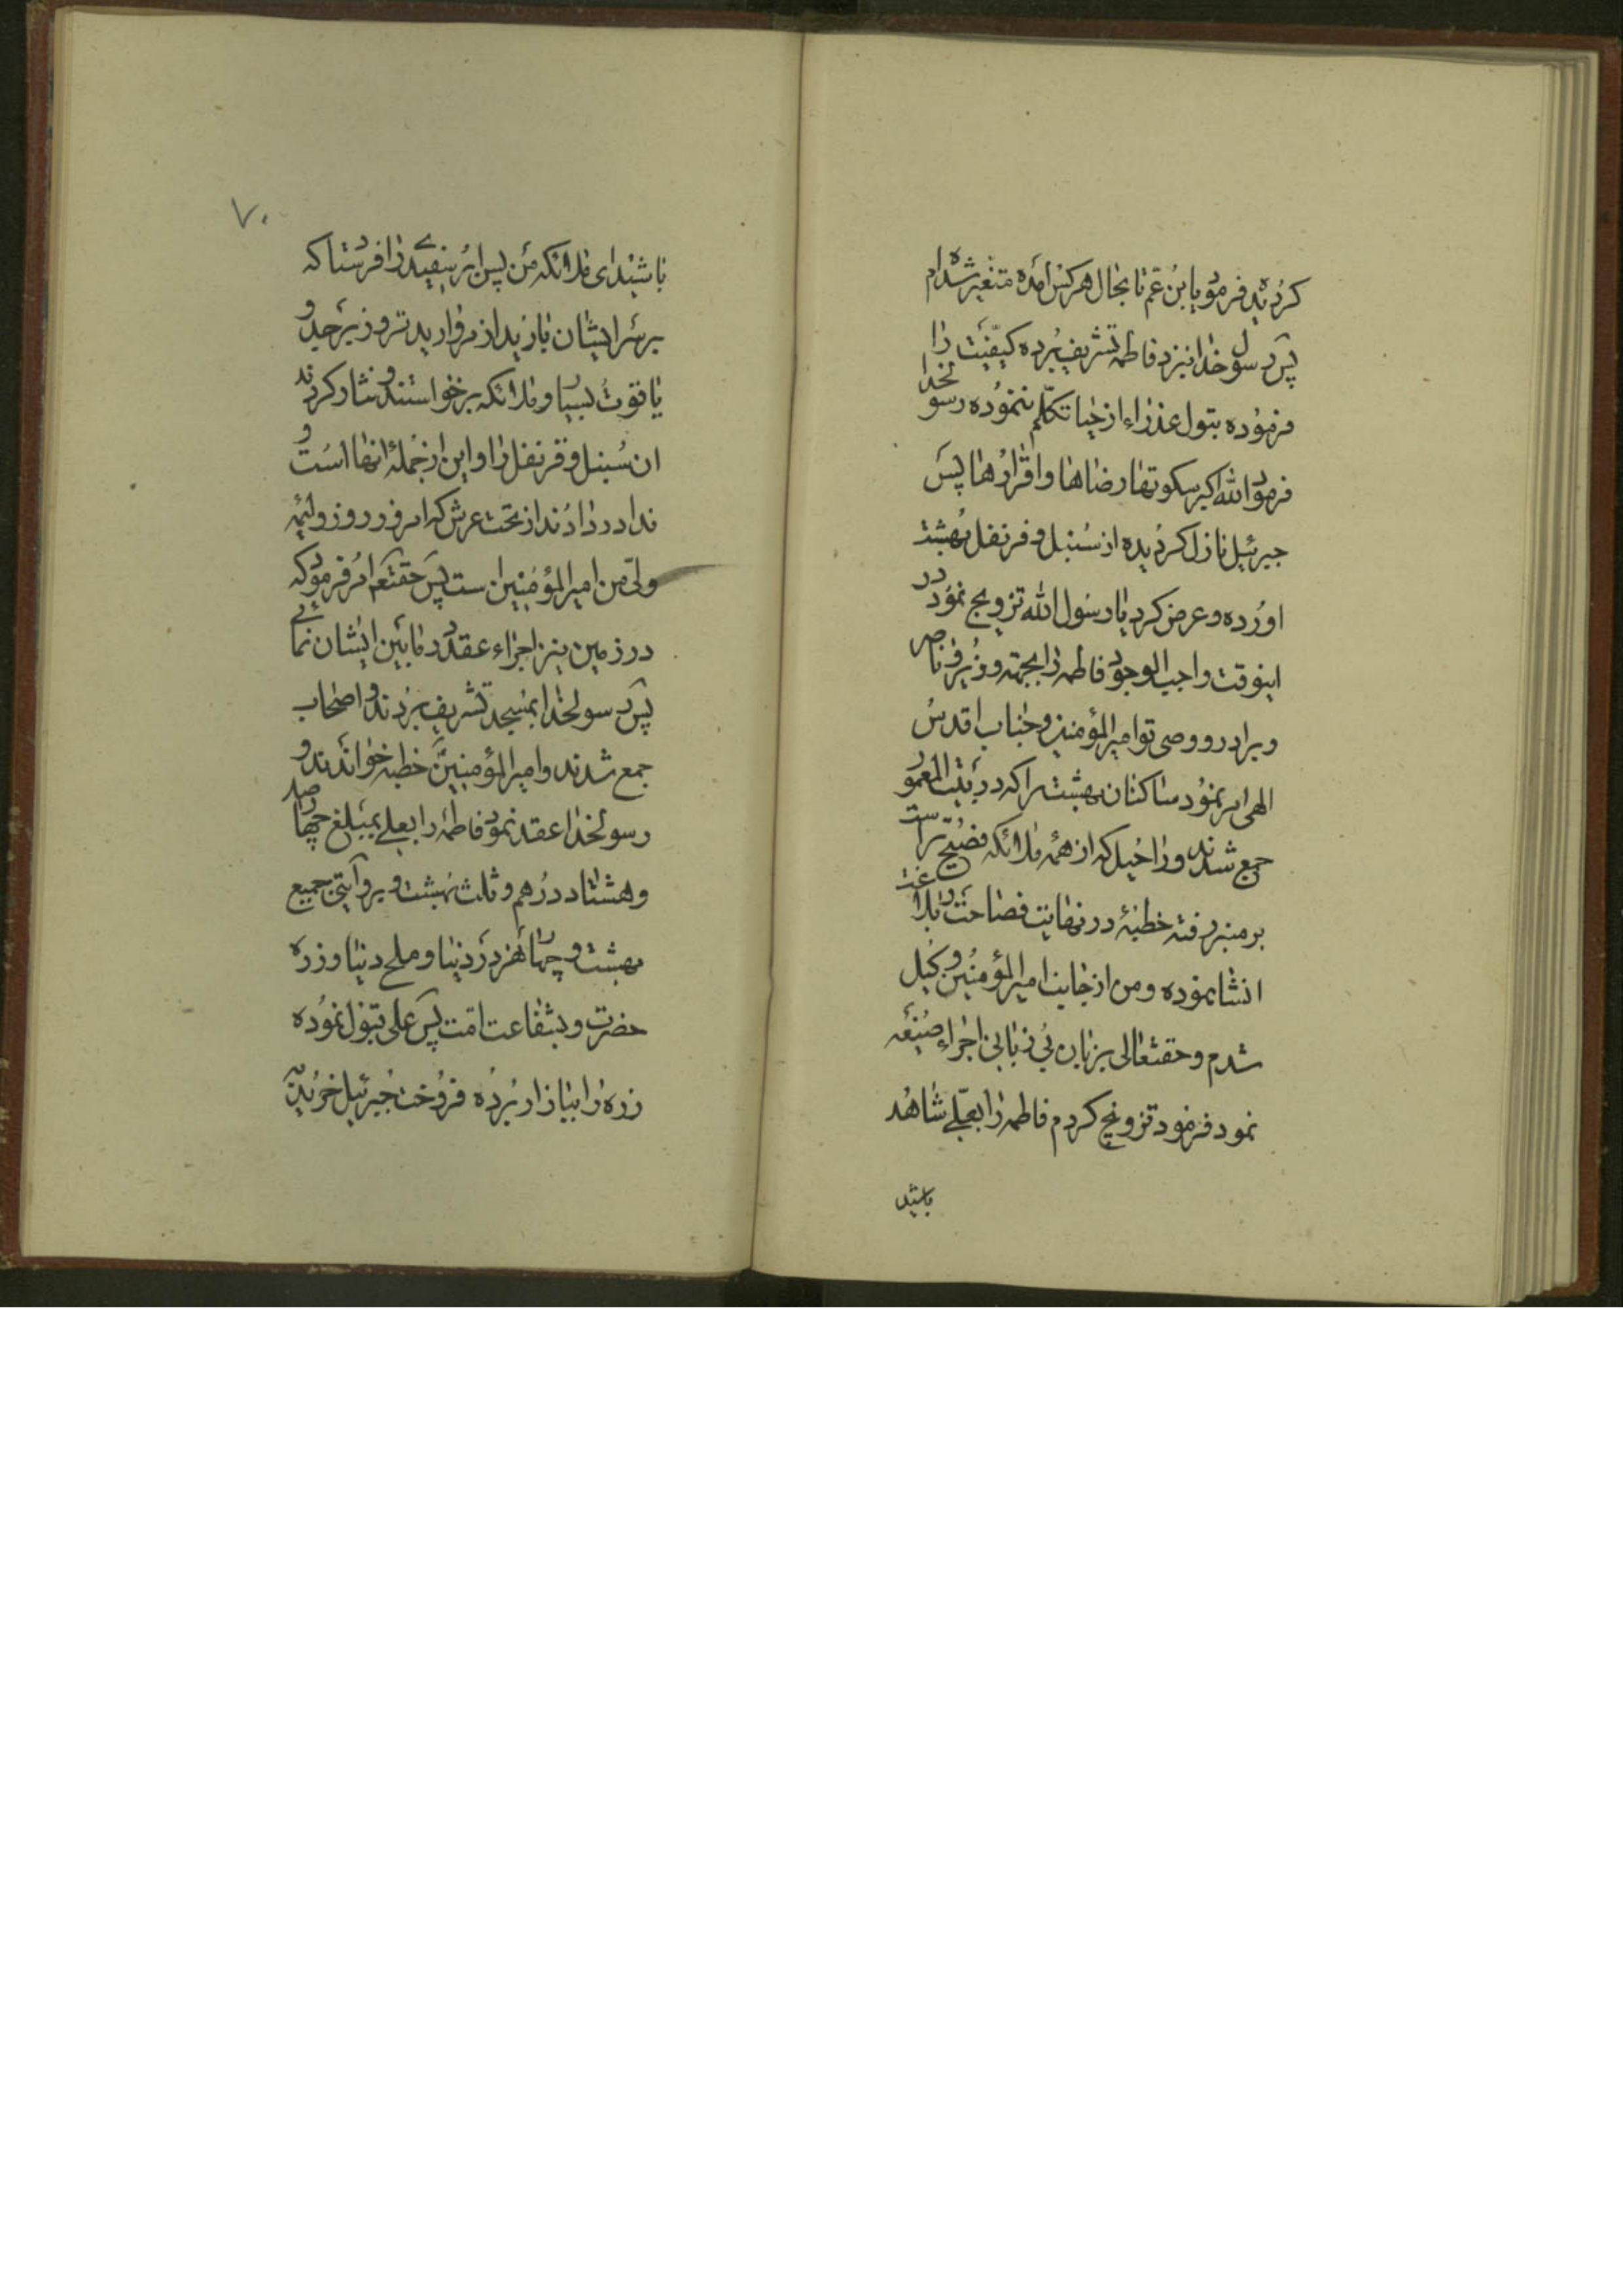 کردید فرمود یا بن عم تا بحال هر کس آمده متغیر شده ام
پس رسول خدا نیز نزد فاطمه تشریف برده کیفیت را
فرموده بتول عذراء از حیا تکلم ننموده رسولخدا
فرمود الله اکبر سکوتها رضاها و اقرارها پس
جبرئیل نازل کردیده از سنبل و قرنفل بهشت
اورده و عرض کرد یا رسول الله تزویج نمود در
اینوقت واجب الوجود فاطمه را بجهته وزیر و ناصر
و برادر و وصی تو امیرالمؤمنین و جناب اقدس
الهی امر نمود ساکنان بهشت را که در بیت المعمور
جمع شدند و راحیل که از همه ملائکه فصیح تر است
بر منبر رفته خطبهٔ در نهایت فصاحت و بلاغت
انشا نموده و من از جانب امیرالمؤمنین وکیل
شدم و حقتعالی بزبان بی زبانی اجراء صیغه
نمود فرمود تزویج کردم فاطمه را بعلی شاهد
باشید
۷۰
باشید ای ملائکه من پس ابر سفیدی را فرستاد که
بر سر ایشان بارید از مروارید تر و زبرجد و
یاقوت بسیار و ملائکه برخواستند و نثار کردند
ان سنبل و قرنفل را و این از جملهٔ انها است و
ندا در دادند از تحت عرش که امروز روز ولیمه
ولی من امیرالمؤمنین است پس حقتعم امر فرمود که
در زمین نیز اجراء عقد در مابین ایشان نمائی
پس رسولخدا بمسجد تشریف بردند و اصحاب
جمع شدند و امیرالمؤمنین خطبه خواندند و
رسولخدا عقد نمود فاطمه را بعلی بمبلغ چهار صد
و هشتاد درهم و ثلث بهشت و بروایتی جمیع
بهشت و چهار نهر در دنیا و ملح دنیا و زره
حضرت و بشفاعت امت پس علی قبول نموده
زره را ببازار برده فروخت جبرئیل خرید